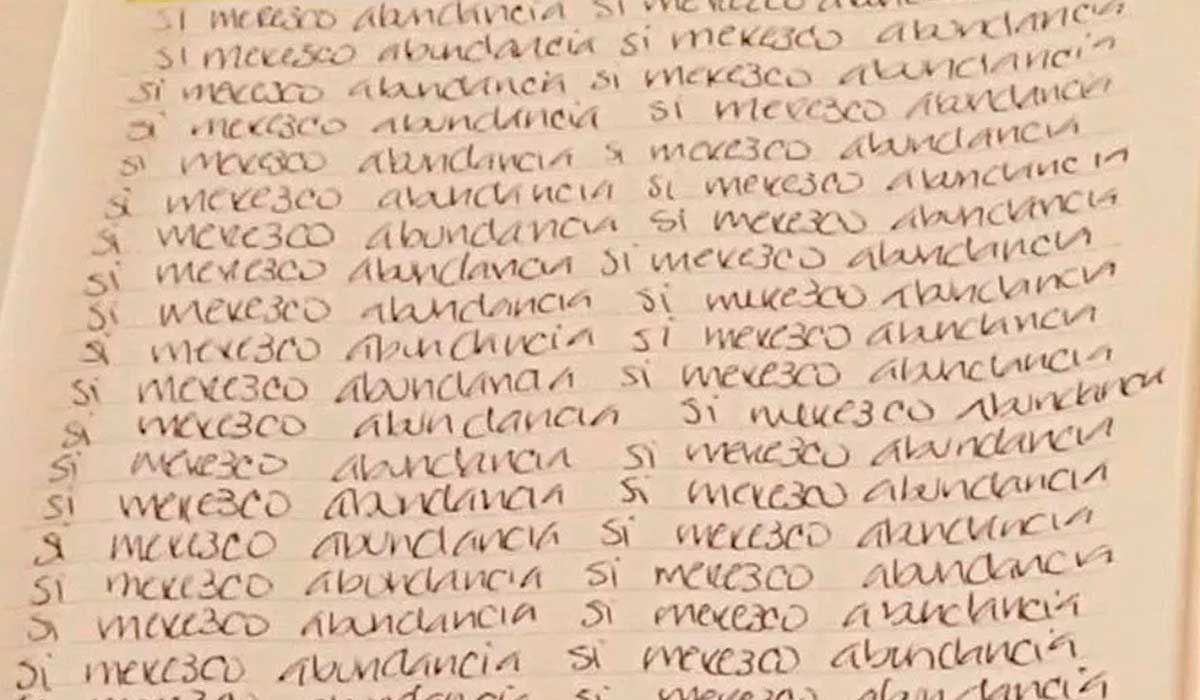 si meresco abundancia si meresco abundancia
si meresco abundancia si mere3co abundancia
si mere3co abundancia si mere3co abundancia
si mere3co abundancia si mere3co abundancia
si mere3co abundancia si mere3co abundancia
si mere3co abundancia si mere3co abundancia
si mere3co abundancia si mere3co abundancia
si mere3co abundancia si mere3co abundancia
si mere3co abundancia si mere3co abundancia
si mere3co abundancia si mere3co abundancia
si mere3co abundancia si mere3co abundancia
si mere3co abundancia si mere3co abundancia
si mere3co abundancia si mere3co abundancia
si mere3co abundancia si mere3co abundancia
si mere3co abundancia si mere3co abundancia
si mere3co abundancia si mere3co abundancia
si mere3co abundancia si mere3co abundancia
si mere3co abundancia si mere3co abundancia
si mere3co abundancia si mere3co abundancia